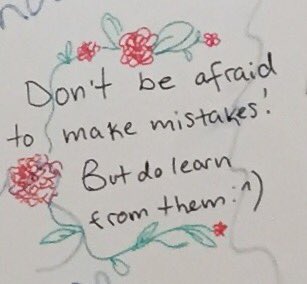 Don't be afraid
to make mistakes!
But do learn
from them :^)